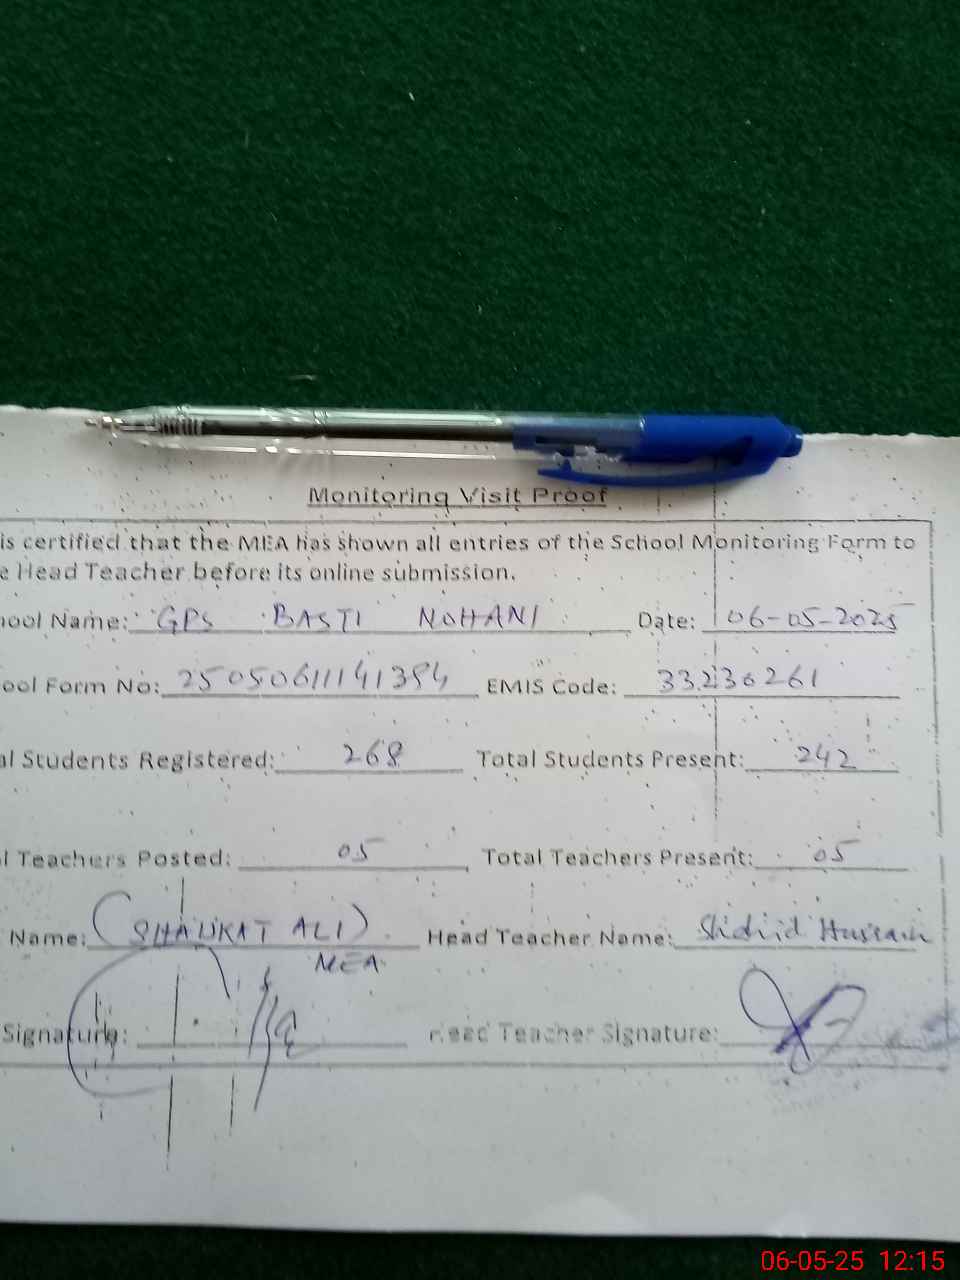 Monitoring Visit Proof
is certified that the MEA has shown all entries of the School Monitoring Form to
e Head Teacher before its online submission.
hool Name: GPS BASTI NOHANI Date: 06-05-2025
ool Form No: 25050611141384 EMIS Code: 33230261
al Students Registered: 268 Total Students Present: 242
l Teachers Posted: 05 Total Teachers Present: 05
Name: (SHAUKAT ALI) Head Teacher Name: Hussain
MEA
Signature: Head Teacher Signature:
06-05-25 12:15